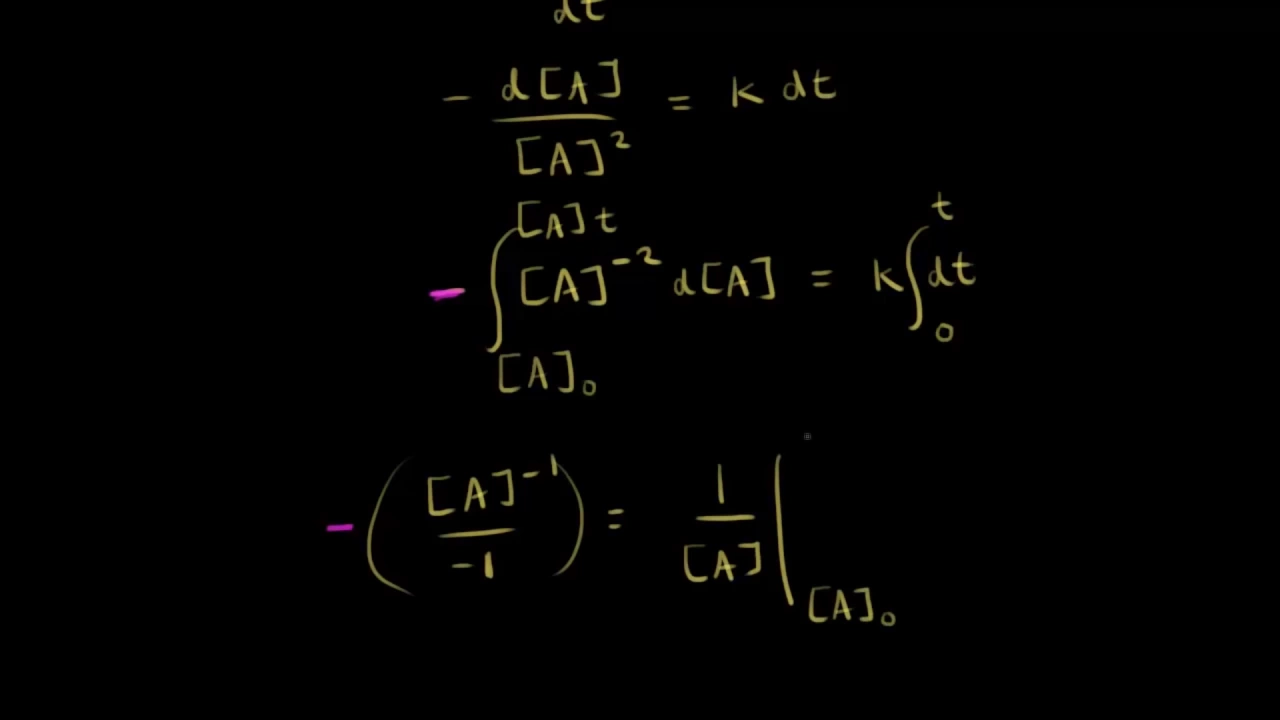 dt
- d[A]/[A]² = k dt
- ∫_{[A]₀}^{[A]t} [A]⁻² d[A] = k ∫_0^t dt
- ([A]⁻¹/-1) = 1/[A] |_{[A]₀}